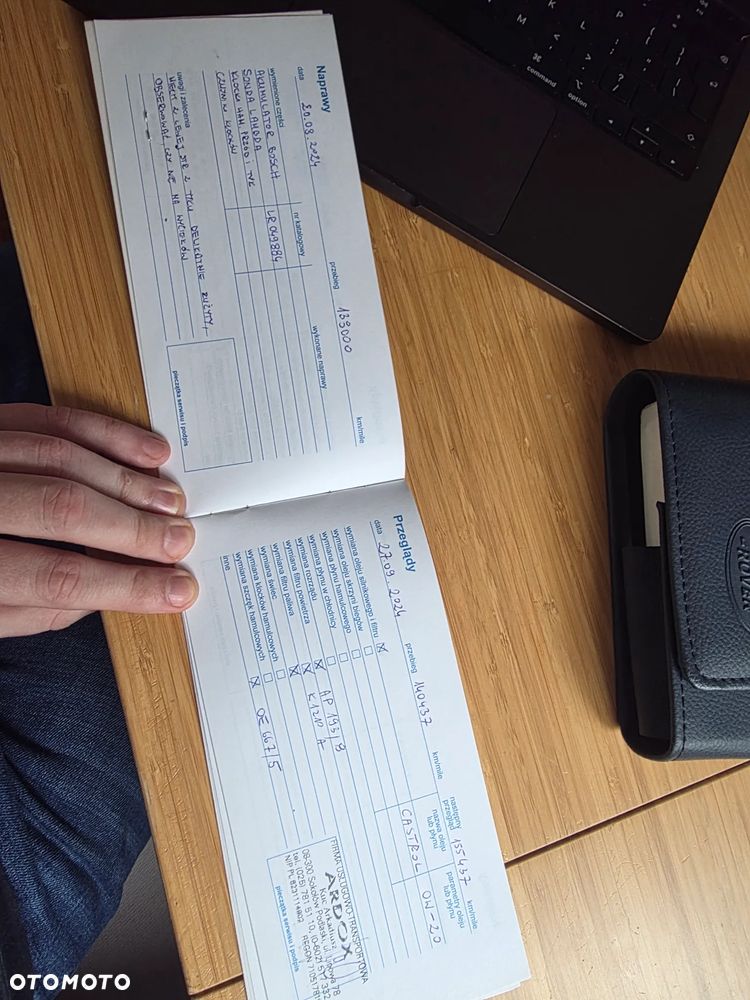 Naprawy
data 20.08.2024 przebieg 139000 km/mile
wymienione części nr katalogowy wykonane naprawy
AKUMULATOR BOSCH
SONDA LAMBDA LR049884
KLOCKI HAM. PRZÓD I TYŁ
CZUJNIKI KLOCKÓW
uwagi i zalecenia
OBSERWOWAĆ CZY NIE MA WYCIEKÓW
pieczątka serwisu i podpis
Przeglądy
data 27.09.2024 przebieg 140437 km/mile następny przegląd 155437 km/mile
nazwa oleju lub płynu parametry oleju lub płynu
wymiana oleju silnikowego i filtru CASTROL 0W-20
wymiana oleju skrzyni biegów
wymiana płynu hamulcowego
wymiana płynu w chłodnicy
wymiana rozrządu
wymiana filtru powietrza AP 193/9
wymiana filtru paliwa K1210 A
wymiana świec
wymiana klocków hamulcowych
wymiana szczęk hamulcowych
inne OE 667/5
FIRMA USŁUGOWO TRANSPORTOWA
ARDOX
Kuc Arkadiusz
08-300 Sokołów Podlaski, ul. Lipowa 78
tel. (025) 781 51 10, (0-602) 517 332
NIP PL 8231114802 REGON 7105178
pieczątka serwisu i podpis
command
option
OTOMOTO